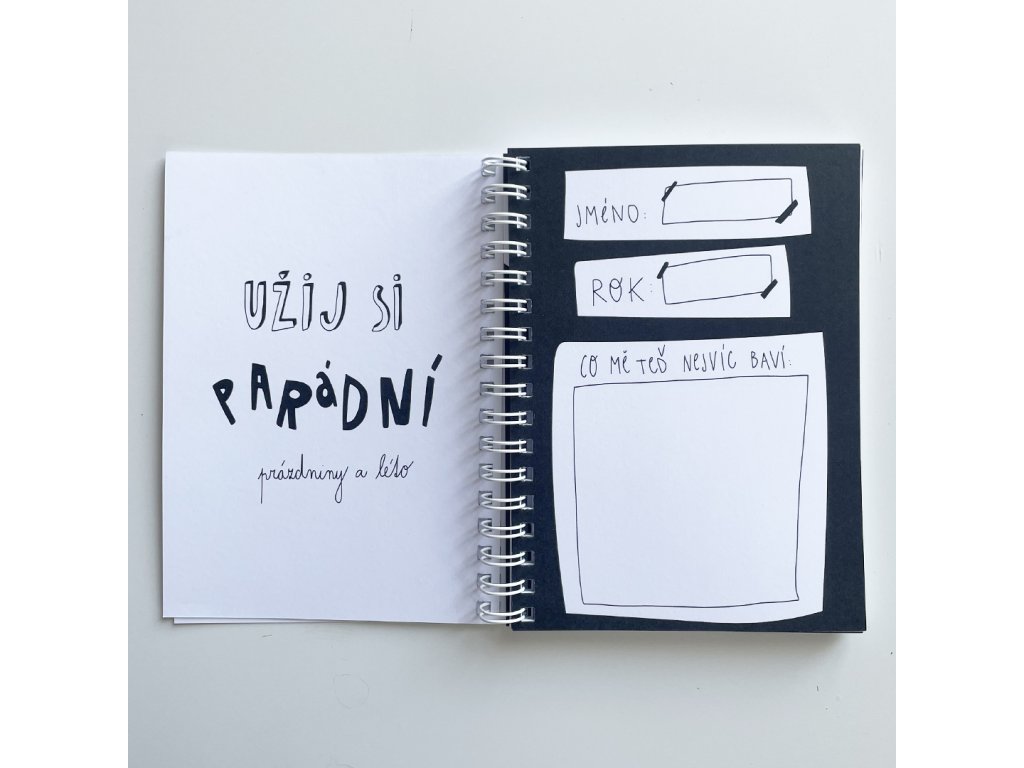 UŽIJ SI
PARÁDNÍ
prázdniny a léto
JMÉNO:
ROK:
CO MĚ TEĎ NEJVÍC BAVÍ: